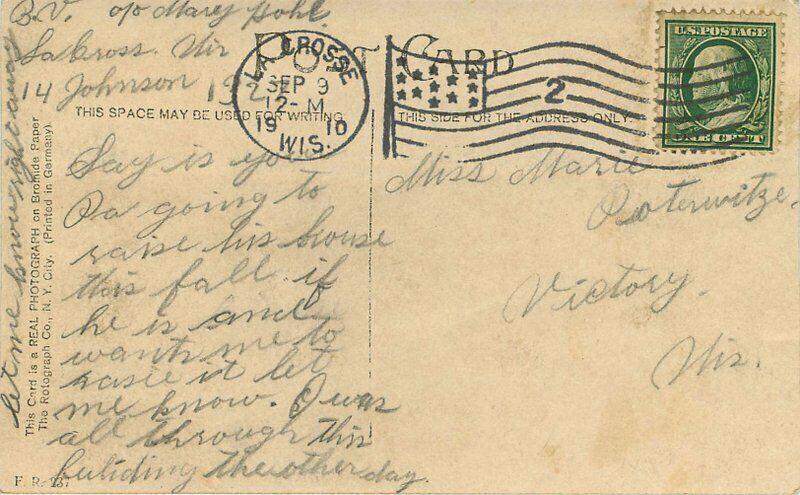 B.V. o/o Mary Gohl.
LaCross. Wis
14 Johnson
POST CARD
LA CROSSE
SEP 9
12-M
1910
WIS.
2
U.S. POSTAGE
ONE CENT
THIS SPACE MAY BE USED FOR WRITING
THIS SIDE FOR THE ADDRESS ONLY.
Say is yo
Pa going to
raise his house
this fall if
he is and
wants me to
rasie it let
me know. I was
all through this
buliding the other day.
let me know right away
Miss Marie
Victory.
Wis.
This Card is a REAL PHOTOGRAPH on Bromide Paper
The Rotograph Co., N. Y. City. (Printed in Germany)
F. R. 237